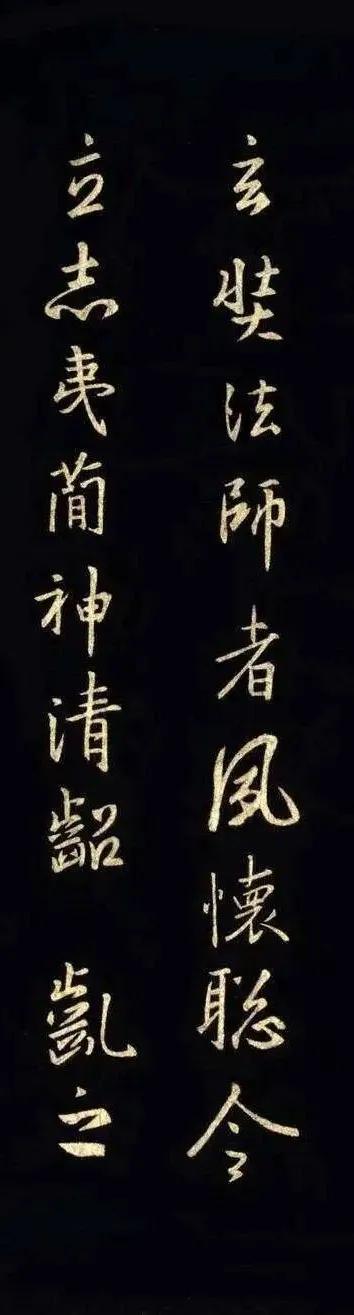 玄奘法師者夙懷聡令
立志夷簡神清齠齔之